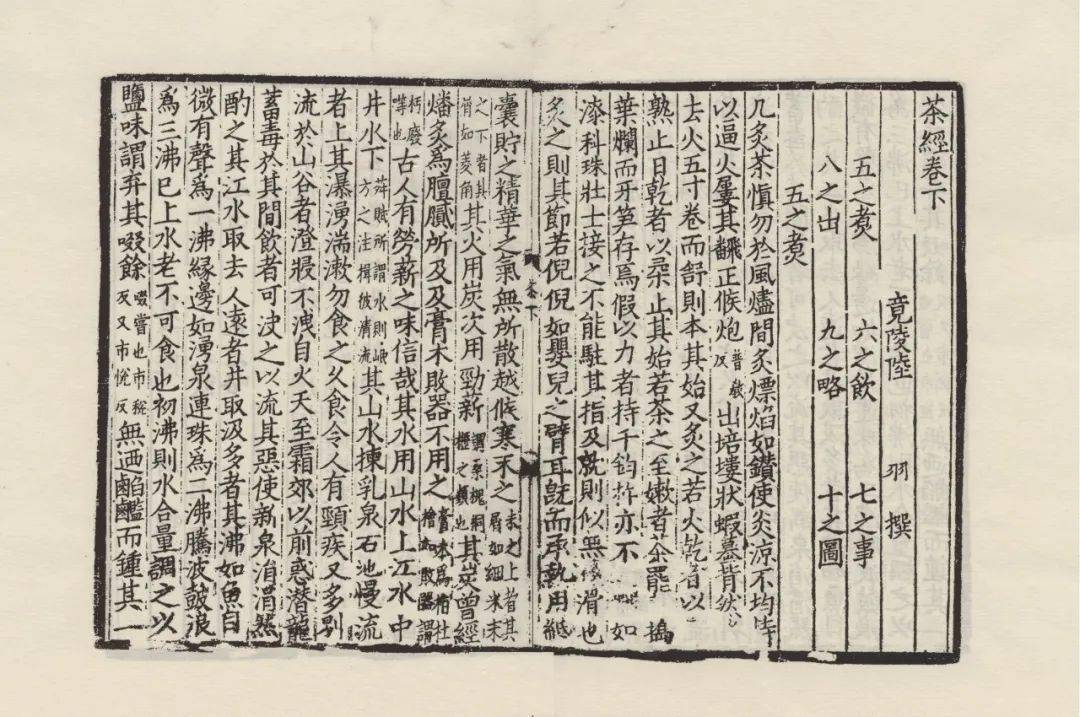 茶經卷下
竟陵陸 羽 撰
五之煑 六之飲 七之事
八之出 九之略 十之圖
五之煑
凡炙茶慎勿於風燼間炙熛焰如鑽使炎涼不均
以逼火屢其飜正候炮普敎反出培塿狀蝦蟇背然
去火五寸卷而舒則本其始又炙之若火乾者以
熟止日乾者以柔止其始若茶之至嫩者茶罷 搗
葉爛而牙笋存焉假以力者持千鈞杵亦不 如
漆科珠壯士接之不能駐其指及就則似無 滑也
炙之則其節若倪倪如嬰兒之臂耳既而承熱用紙
茶下
囊貯之精華之氣無所散越候寒末之末之上者其屑如細米末
之下者其屑如菱角其火用炭次用勁薪謂桑槐桐櫪之類也其炭曾經
燔炙爲膻膩所及及膏木敗器不用之膏木爲栢桂檜也敗器謂
杇廢噐也古人有勞薪之味信哉其水用山水上江水中
井水下荈賦所謂水則岷方之注揖彼淸流其山水揀乳泉石池慢流
者上其瀑湧湍漱勿食之久食令人有頸疾又多別
流於山谷者澄浸不洩自火天至霜郊以前惑潜龍
蓄毒於其間飲者可决之以流其惡使新泉涓涓然
酌之其江水取去人遠者井取汲多者其沸如魚目
微有聲爲一沸緣邊如湧泉連珠爲二沸騰波皷浪
爲三沸已上水老不可食也初沸則水合量調之以
鹽味謂弃其啜餘啜嘗也市稅反又市悅反無迺䶢䶣而鍾其一